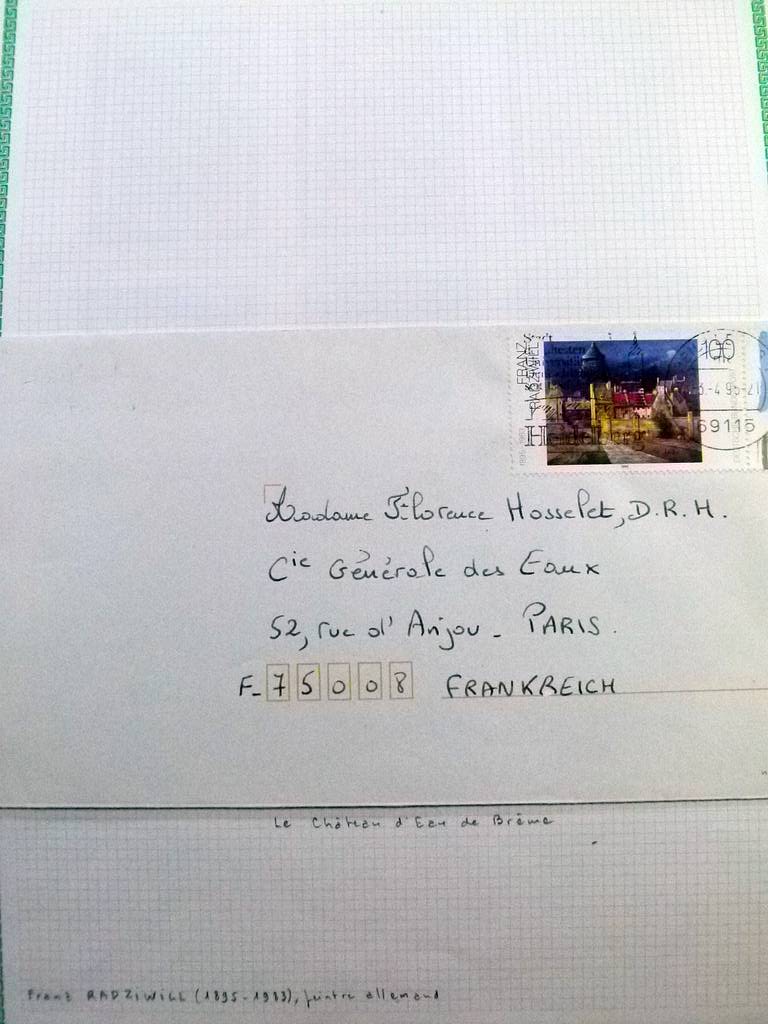 FRANZ
RADZIWILL
100
Heidelberg
69115
Madame Florence Hosselet, D.R.H.
Cie Générale des Eaux
52, rue d'Anjou - PARIS.
F- 75008 FRANKREICH
Le Château d'Eau de Brême
Franz RADZIWILL (1895-1983), peintre allemand